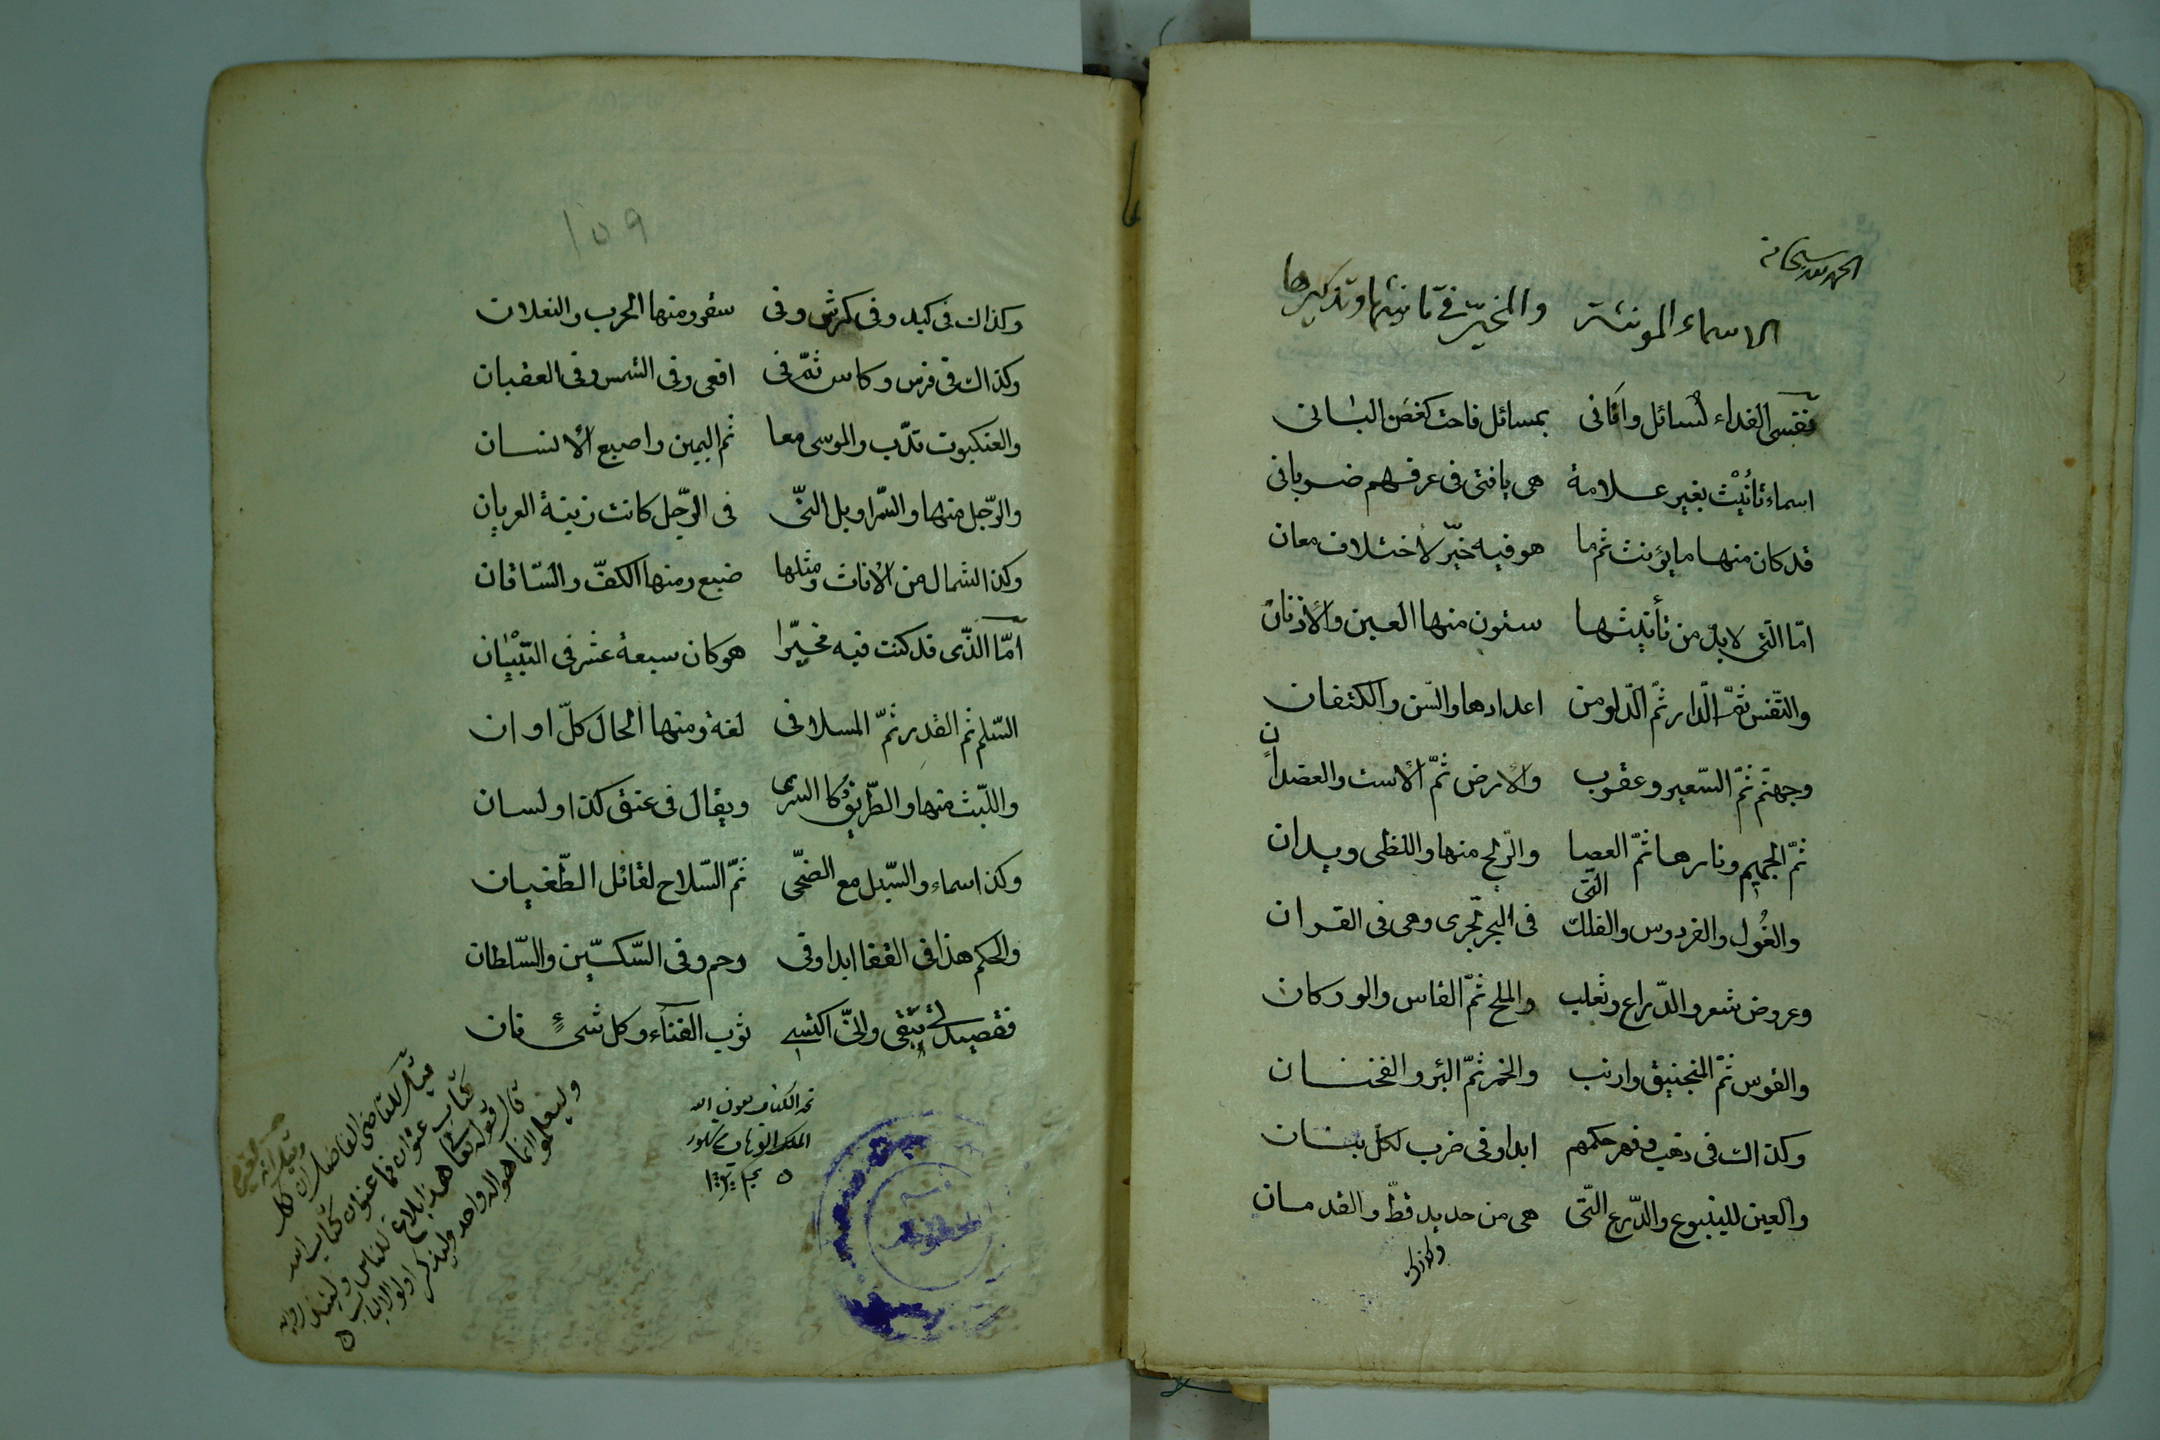 الحمد لله سبحانه
الاسماء المونثة والمخيّر فى تانيثها وتذكيرها
نفسى الفداء لسائل وافانى بمسائل فاحت كغصن البانى
اسماء تأنيث بغير علامة هى يا فتى فى عرفهم ضربانى
قد كان منها ما يؤنث ثم ما هو فيه خيّر لأختلاف معان
امّا التى لابدّ من تأنيثها ستون منها العين والأذنان
والنّفس ثمّ الدّار ثمّ الدّلو من اعدادها والسّن والكتفان
وجهنّم ثمّ السّعير وعقرب والارض ثمّ الأست والعضدان
ثمّ الجحيم ونارها ثمّ العصا والرّيح منها واللظى ويدان
والغُول والفردوس والفلك التى فى البحر تجرى وهى فى القران
وعروض شعر والذّراع وثعلب والملح ثمّ الفاس والوركان
والقوس ثمّ المنجنيق وارنب والخمر ثمّ البئر والفخذان
وكذاك فى ذهب وفهر حكمهم ابدا وفى ضرب لكلّ بنان
والعين للينبوع والدّرع التّى هى من حديد قطّ والقدمان
وكذاك
١٥٩
وكذاك فى كبد وفى كرش وفى سقر ومنها الحرب والنعلان
وكذاك فى فرس وكاس ثمّ فى افعى وفى الشمس وفى العقبان
والعنكبوت تدّب والموسى معا ثم اليمين واصبع الأنسان
والرّجل منها والسّراويل التّى فى الرّجل كانت زينة العريان
وكذا الشمال من الأناث ومثلها ضبع ومنها الكفّ والسّاقان
امّا الذّى قد كنت فيه مخيّرا هو كان سبعة عشر فى التّبيان
السّلم ثم القدر ثمّ المسك فى لغة ومنها الحال كلّ اوان
واللّيث منها والطّريق كا السرى ويقال فى عنق كذا ولسان
وكذا اسماء والسّبل مع الضّحى ثمّ السّلاح لقاتل الطّغيان
والحكم هذا فى القفا ابدا وفى رحم وفى السّكّين والسّلطان
فقصيدتى تبقى وانّى اكتسى ثوب الفناء وكل شىءٍ فان
تمت الكتاب بعون الله
الملك الوهاب
قيل للقاضى الفاضل ان لكل
كتاب عنوان فما عنوان كتاب الله
قال قوله تعالى هذا بلاغ للناس ولينذروا به
وليعلموا انما هو اله واحد وليذكر اولو الالباب